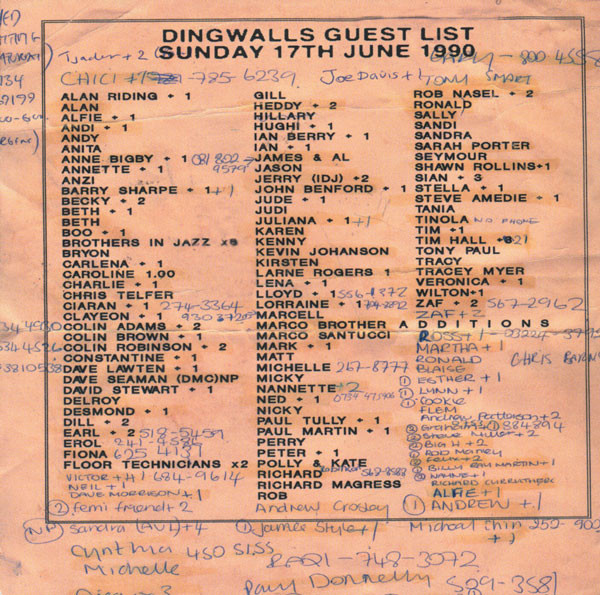 DINGWALLS GUEST LIST
SUNDAY 17TH JUNE 1990
800-4558
Tjader + 2
CHICI +1 785-6239
Joe Davis +1
TONY SMART
ALAN RIDING + 1
ALAN
ALFIE + 1
ANDI + 1
ANDY
ANITA
ANNE BIGBY + 1
ANNETTE + 1
ANZI
BARRY SHARPE + 1 +1
BECKY + 2
BETH + 1
BETH
BOO + 1
BROTHERS IN JAZZ
BRYON
CARLENA + 1
CAROLINE 1.00
CHARLIE + 1
CHRIS TELFER
CIARAN + 1 274-3364
CLAYEON + 1
COLIN ADAMS + 2
COLIN BROWN + 1
COLIN ROBINSON + 2
CONSTANTINE + 1
DAVE LAWTEN + 1
DAVE SEAMAN (DMC)NP
DAVID STEWART + 1
DELROY
DESMOND + 1
DILL + 2
EARL + 2 518-5459
EROL 241-4584
FIONA 625 4137
FLOOR TECHNICIANS x2
VICTOR +1 684-9614
NEIL +1
DAVE MORRISON +1
2 Femi friend + 2
GILL
HEDDY + 2
HILLARY
HUGHI + 1
IAN BERRY + 1
IAN + 1
JAMES & AL
JASON
JERRY (IDJ) +2
JOHN BENFORD + 1
JUDE + 1
JUDI
JULIANA + 1 +1
KAREN
KENNY
KEVIN JOHANSON
KIRSTEN
LARNE ROGERS 1
LENA + 1
LLOYD + 1 556-1372
LORRAINE + 1
MARCELL
MARCO BROTHER
MARCO SANTUCCI
MARK + 1
MATT
MICHELLE 267-8777
MICKY
NANNETTE +2
NED + 1 0734 475906
NICKY
PAUL TULLY + 1
PAUL MARTIN + 1
PERRY
PETER + 1
POLLY & KATE
RICHARD
RICHARD MAGRESS
ROB
Andrew Crosley
1 James Style + 1
ROB NASEL + 2
RONALD
SALLY
SANDI
SANDRA
SARAH PORTER
SEYMOUR
SHAWN ROLLINS+1
SIAN + 3
STELLA + 1
STEVE AMEDIE + 1
TANIA
TINOLA NO PHONE
TIM +1
TIM HALL
TONY PAUL
TRACY
TRACEY MYER
VERONICA + 1
WILTON+1
ZAF + 2 567-2962
ZAF + 2
ADDITIONS
ROSS +1
MARTHA +1
RONALD
BLAISE
1 ESTHER +1
1 LYNN +1
1 COOKIE
FLEM
Andrew Patterson +2
2 Steve Miller + 2
2 Big H + 2
1 Rob Marney
1 BILLY RAY MARTIN +1
RICHARD CURRUTHERS
ALFIE +1
1 ANDREW +1
Michael Chin
+1
Sandra (AVI) +4
Cynthia
Michelle
RAQI - 748-3072
Paul Donnelly